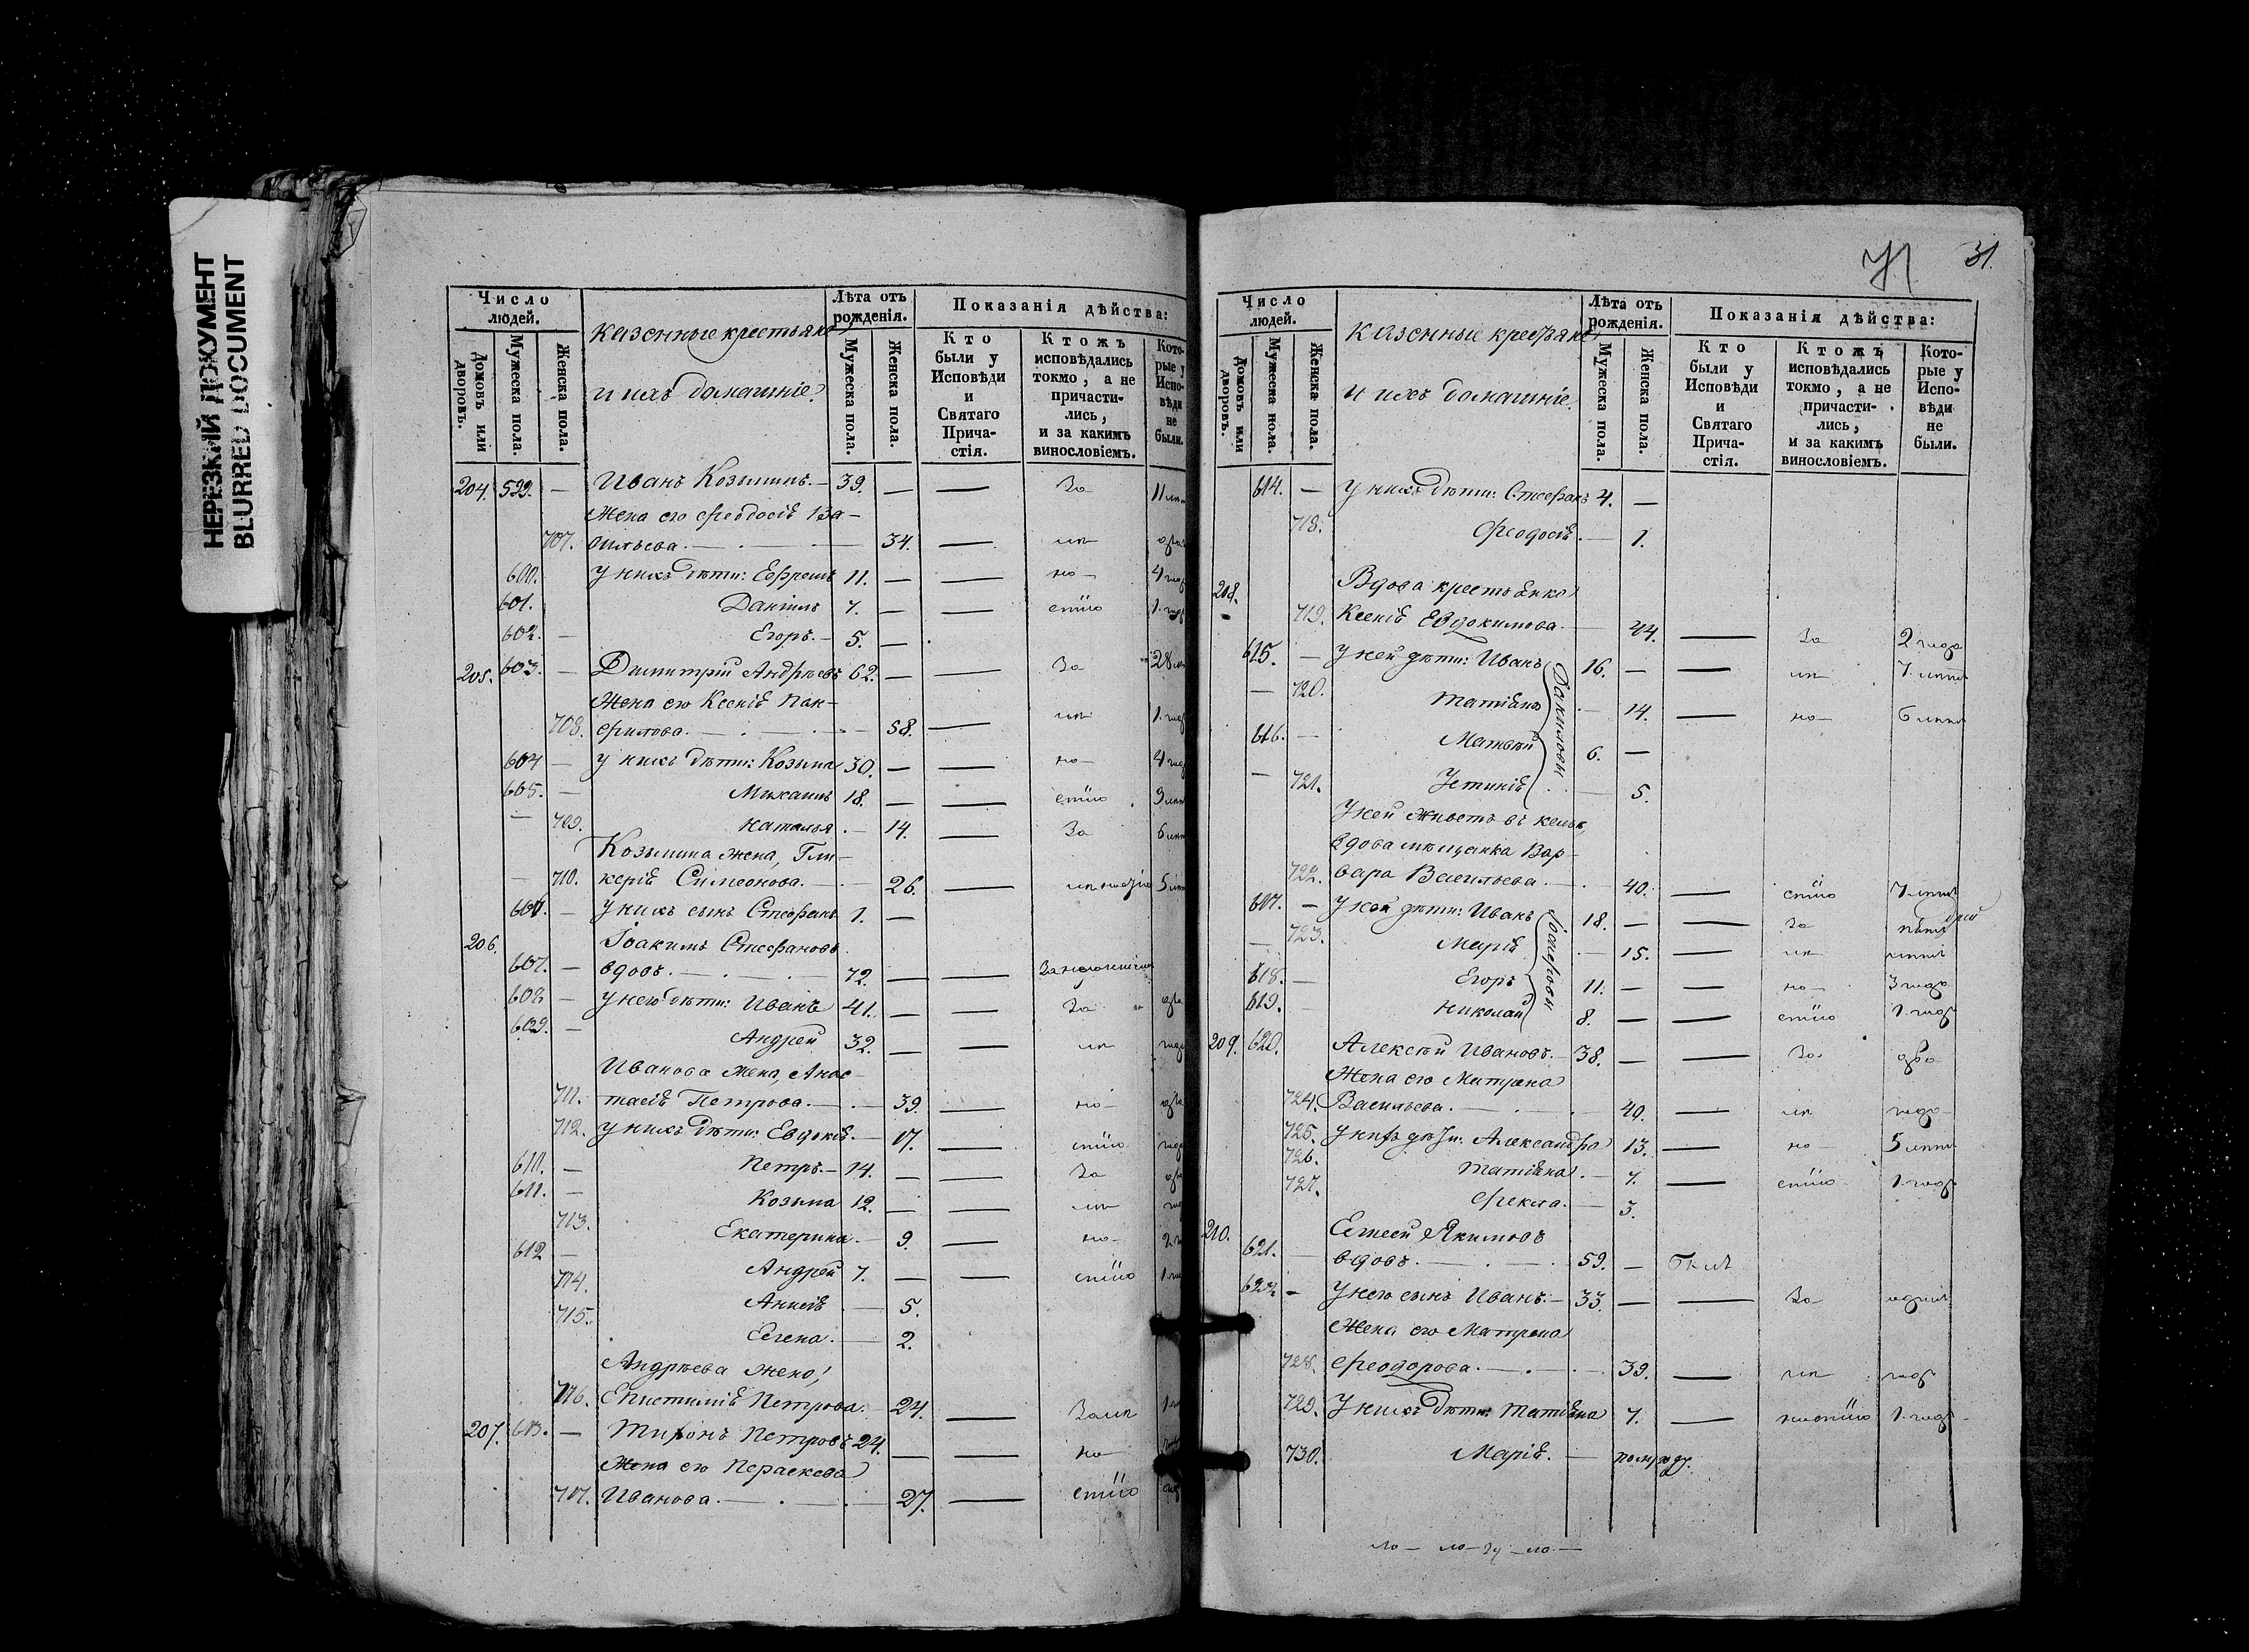 НЕРЕЗКИЙ ДОКУМЕНТ
BLURRED DOCUMENT
31.
Число людей.
Домовъ или дворовъ.
Мужеска пола.
Женска пола.
казенные крестьяне
и ихъ домашніе
Лѣта отъ рожденія.
Мужеска пола.
Женска пола.
Показанія дѣйства:
Кто были у Исповѣди и Святаго Прича-стія.
Ктожъ исповѣдались токмо, а не причасти-лись, и за какимъ винословіемъ.
Кото-рые у Испо-вѣди не были.
204. 599. — Иванъ Козьминъ. — 39. — — За
Жена его Ѳеодосія Ва-
707. сильева. — 34. — ис
600. У нихъ дѣти: Ефремъ 11. — — по
601. Даніилъ 7. — — стію
602. — Егоръ. — 5. —
205. 603. — Димитрій Андреевъ 62. — — За
Жена его Ксенія Пан-
708. филова. — 58. —
604 — у нихъ дѣти: Козьма 30. — — по
605. — Михаилъ 18. — — стію
— 709. Наталья. — 14. — За
Козьмина жена, Гли-
— 710. керія Симеонова. — 26. —
606. — У нихъ сынъ Стефанъ 1. —
206. Іоакимъ Стефановъ
607. — вдовъ. — 72. — —
608 — У него дѣти: Иванъ 41. — — За
609. — Андрей 32. — —
Иванова жена, Анас-
711. тасія Петрова. — 39. — по
712. У нихъ дѣти: Евдокія. — 17. — стію
610. — Петръ. — 14. — — За
611. — Козьма 12. — —
713. Екатерина. — 9. — по
612 — Андрей 7. — — стію
714. Анисія — 5.
715. Елена. — 2.
Андреева жена,
716. Епистимія Петрова. — 24. —
207. 613. — Тихонъ Петровъ 24. — — по
Жена его Параскева
717. Иванова. — 27. — стію
Число людей.
Домовъ или дворовъ.
Мужеска пола.
Женска пола.
казенные крестьяне
и ихъ домашніе.
Лѣта отъ рожденія.
Мужеска пола.
Женска пола.
Показанія дѣйства:
Кто были у Исповѣди и Святаго Прича-стія.
Ктожъ исповѣдались токмо, а не причасти-лись, и за какимъ винословіемъ.
Кото-рые у Испо-вѣди не были.
614. — У нихъ дѣти: Стефанъ 4. —
718. Ѳеодосія. — 1.
208. Вдова крестьянка
719. Ксенія Евдокимова. — 44. — За 2 года
615. — У ней дѣти: Иванъ 16. — — 7 лѣтъ
— 720. Татіяна — 14. — по 6 лѣтъ
616. — Матвѣй 6. —
— 721. Устинія — 5.
Даниловы
У ней живетъ въ кельѣ
вдова мѣщанка Вар-
722. вара Васильева. — 40. — стію 7 лѣтъ
617. — У ней дѣти: Иванъ 18. — — За
— 723. Марія — 15. —
618. — Егоръ 11. — — по 3 года
619. — Николай 8. — — стію 1. годъ
Іосифовы
209. 620. Алексѣй Ивановъ. — 38. — — За два
Жена его Матрена
724. Васильева. — 40. — года
725. У нихъ дѣти: Александра 13. — по 5 лѣтъ
726. Татіяна. — 7. — стію 1. годъ
727. Ѳекла. — 3.
210. Елисей Якимовъ
621. — вдовъ. — 59. — Былъ
622 — У него сынъ Иванъ. — 33. — — За одинъ
Жена его Матрена
728. Ѳеодорова. — 39. — годъ
729. У нихъ дѣти: Татіяна 7. — 1. годъ
730. Марія. — полугоду.